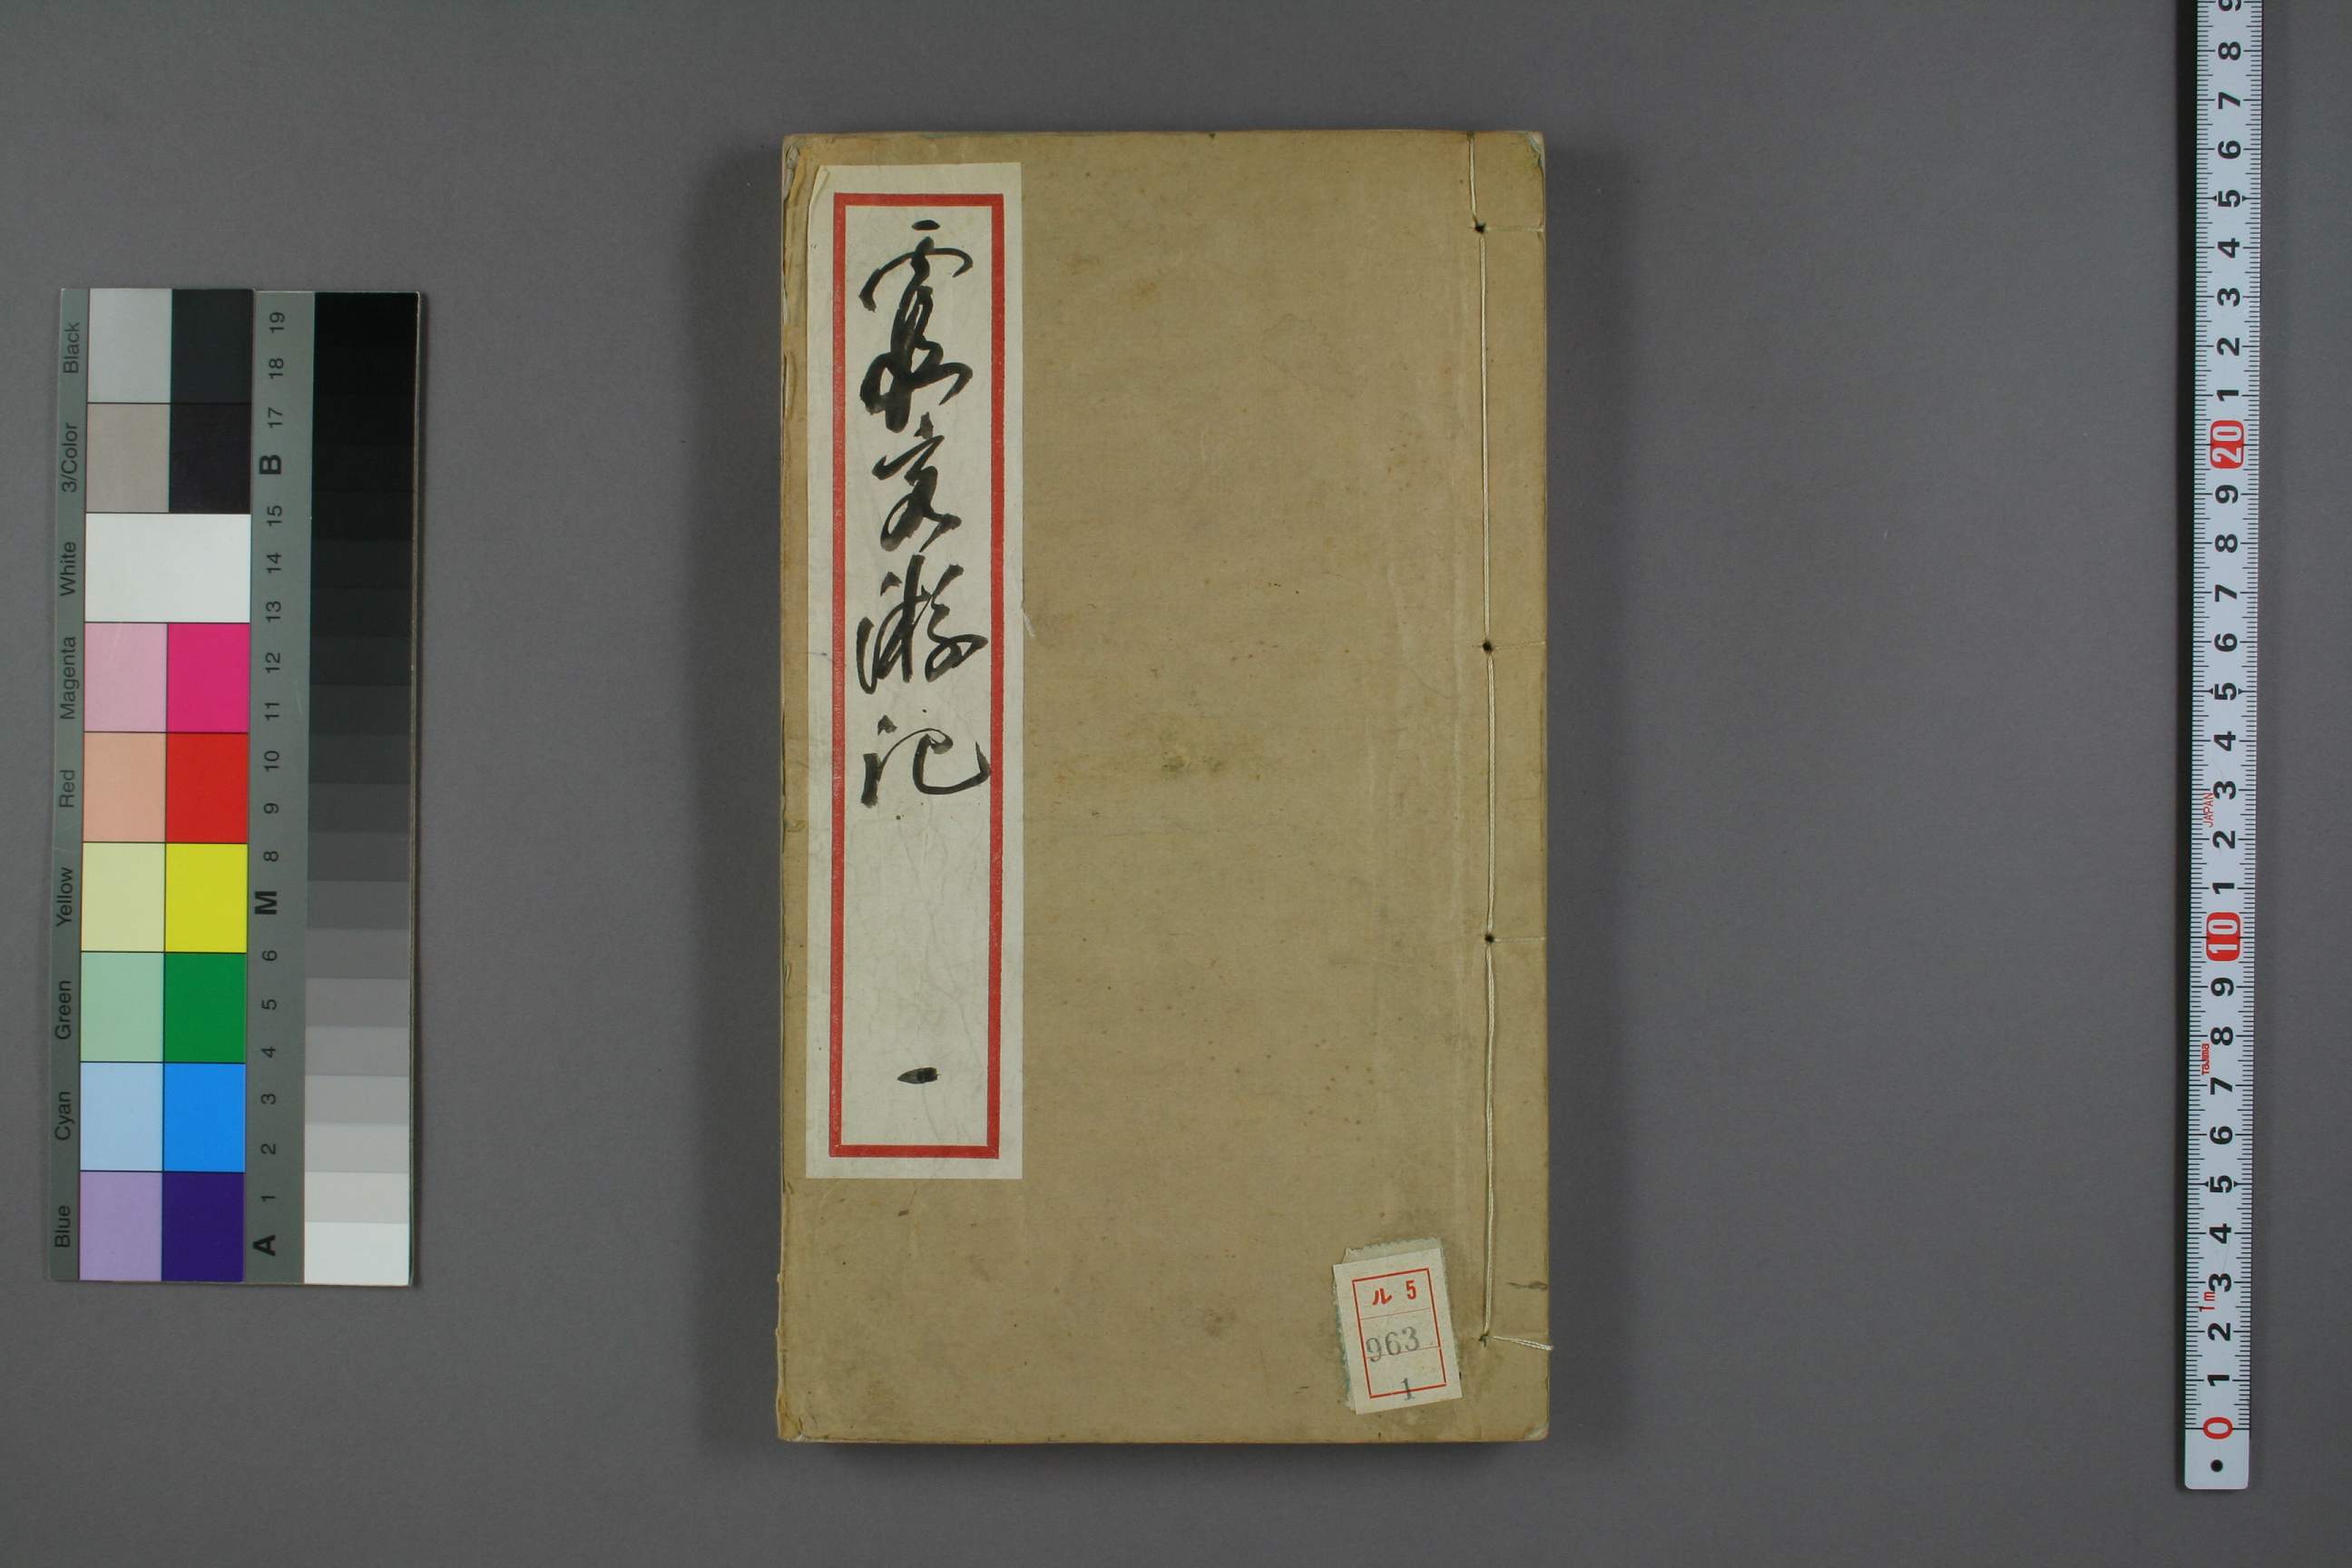 霞客游記
一
ル 5
963
1
Black
3/Color
White
Magenta
Red
Yellow
Green
Cyan
Blue
19
18
17
B
15
14
13
12
11
10
9
8
M
6
5
4
3
2
1
A
9
8
7
6
5
4
3
2
1
20
9
8
7
6
5
4
3
JAPAN
2
1
10
9
8
Tajima
7
6
5
4
3
1m
2
1
0